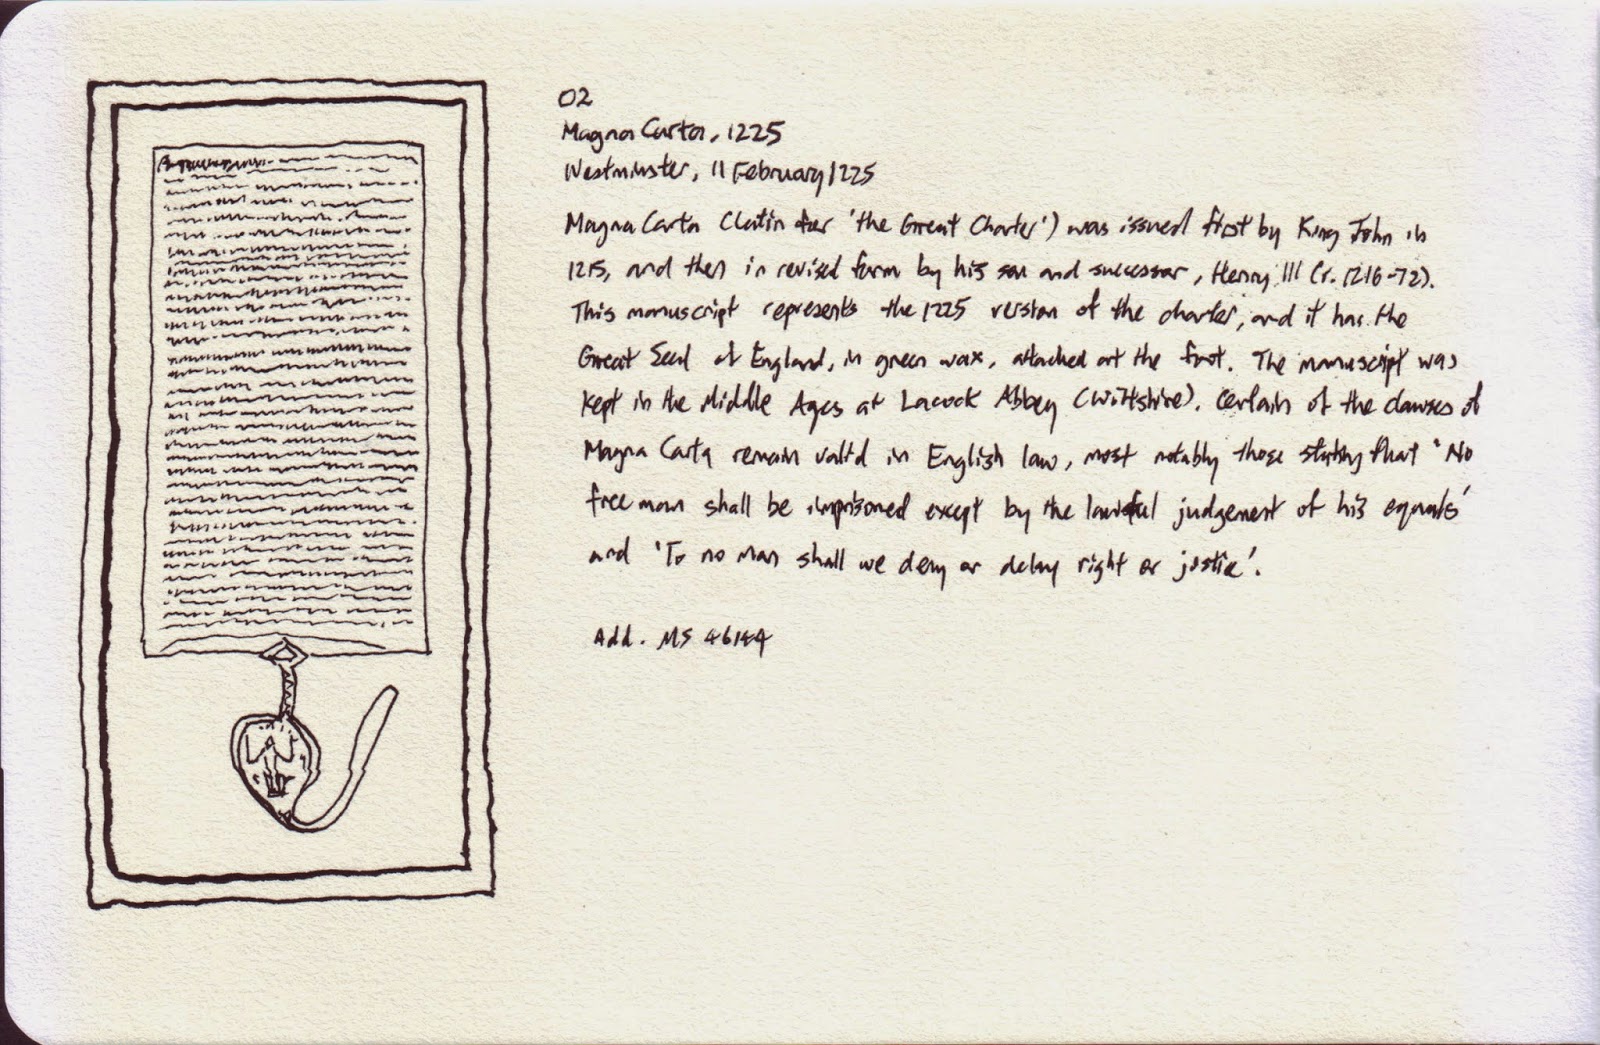 02
Magna Carta, 1225
Westminster, 11 February 1225
Magna Carta (Latin for 'the Great Charter') was issued first by King John in
1215, and then in revised form by his son and successor, Henry III (r. 1216-72).
This manuscript represents the 1225 version of the charter, and it has the
Great Seal of England, in green wax, attached at the foot. The manuscript was
kept in the Middle Ages at Lacock Abbey (Wiltshire). Certain of the clauses of
Magna Carta remain valid in English law, most notably those stating that 'No
free man shall be imprisoned except by the lawful judgement of his equals'
and 'To no man shall we deny or delay right or justice'.
Add. MS 46144